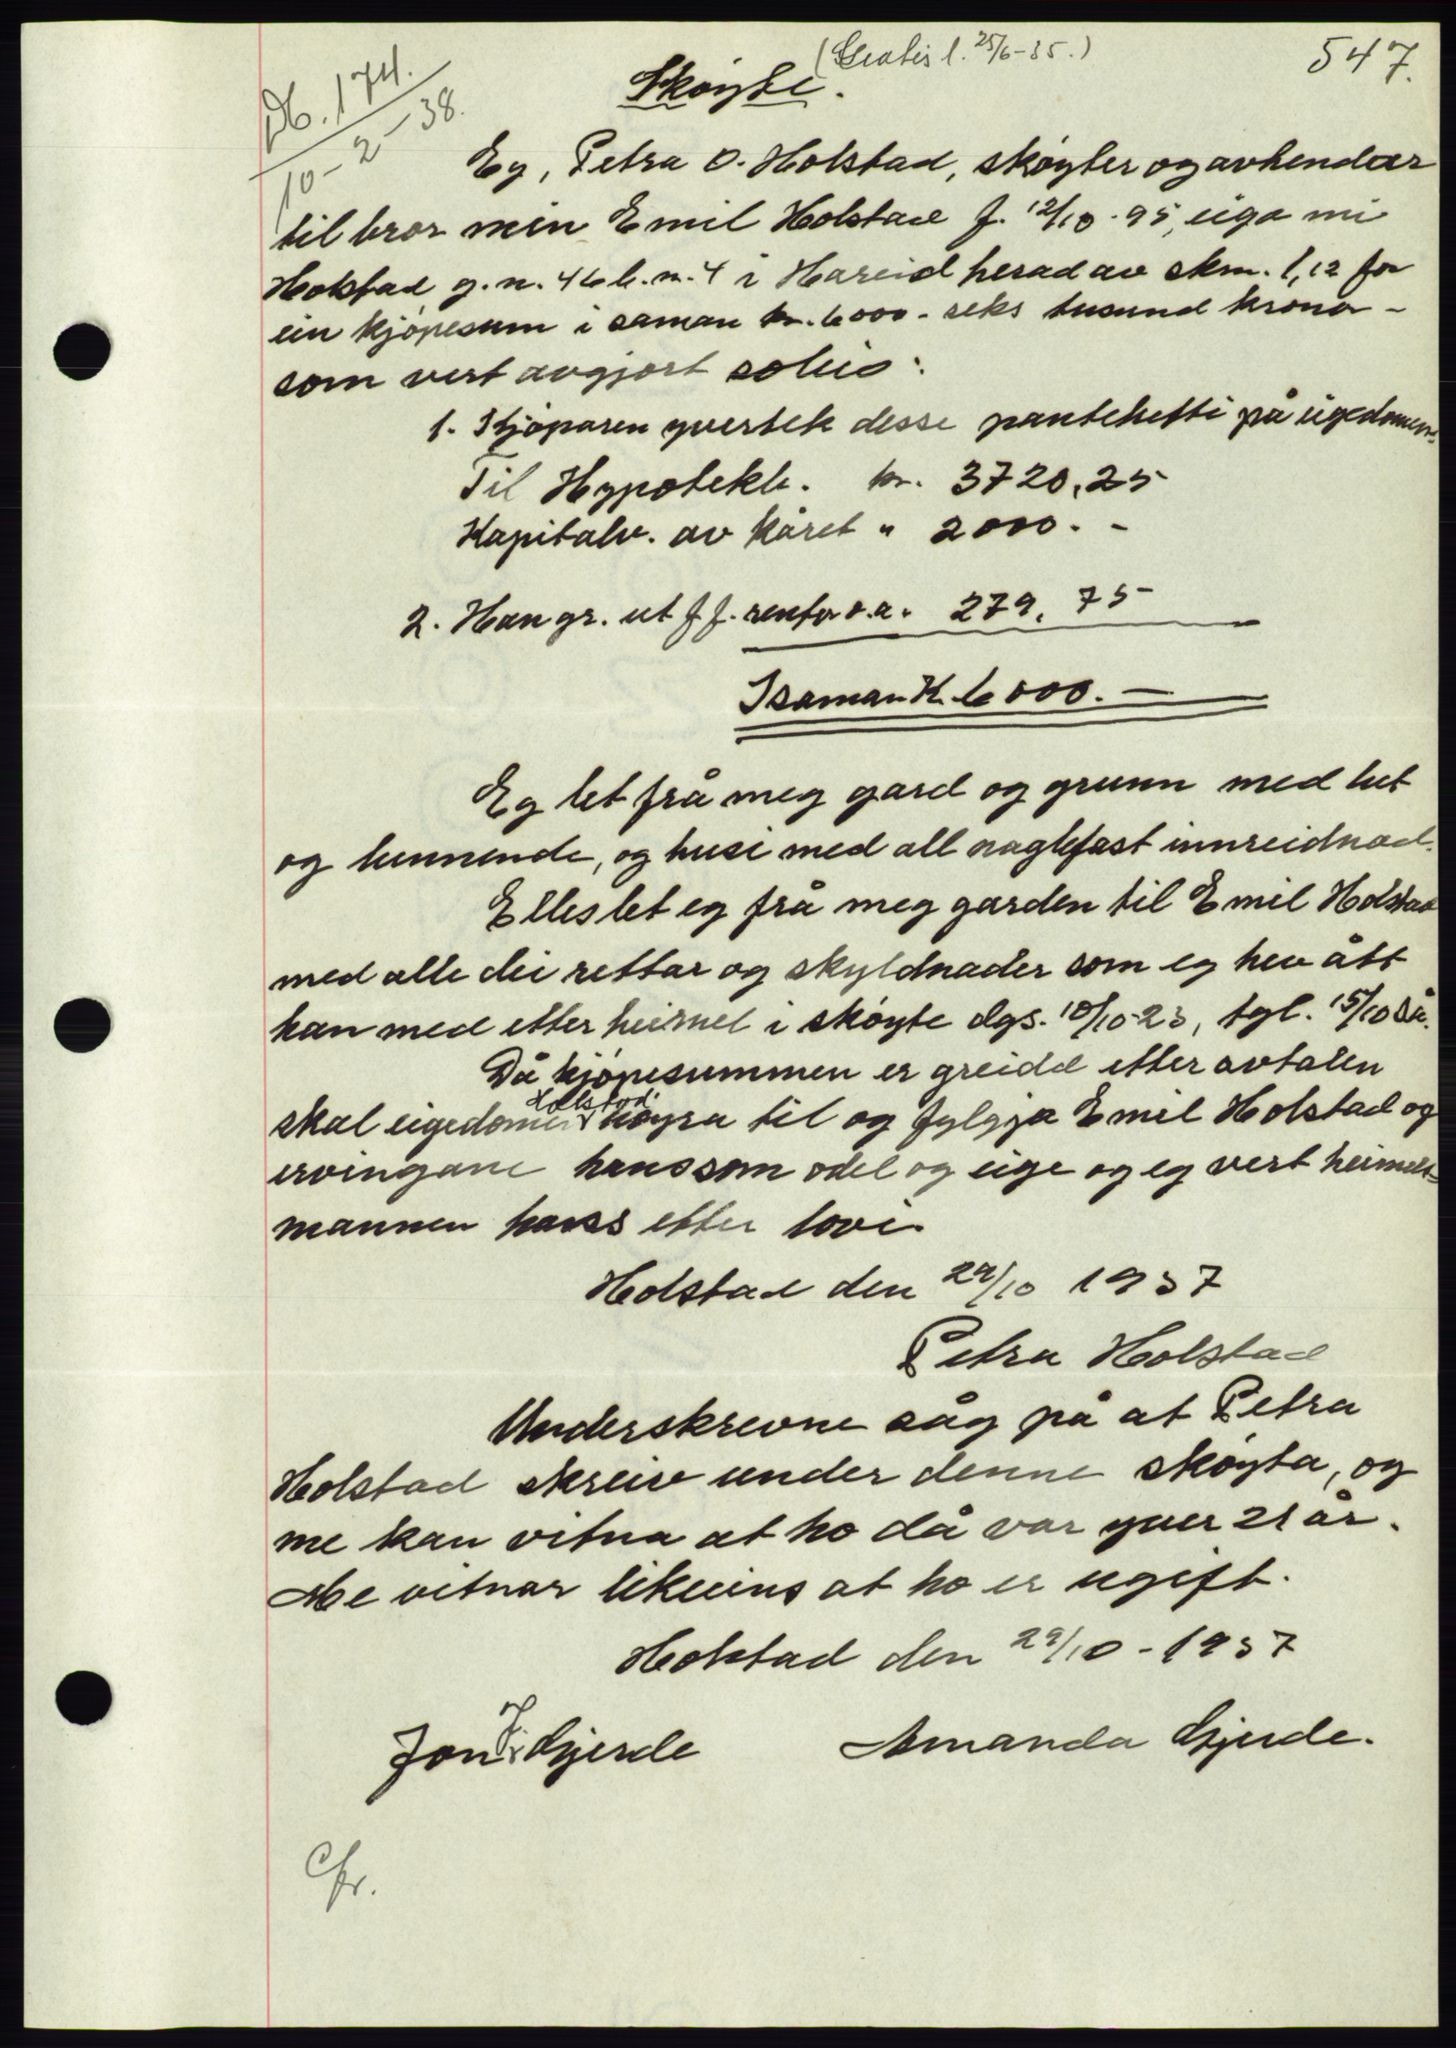 547.
(Gratis l. 25/6-35.)
Db. 174.
10-2-38.
Skøyte.
Eg, Petra O. Holstad, skøyter og avhendar
til bror min Emil Holstad f. 12/10-95, eiga mi
Holstad g.n. 46 b.n. 4 i Hareid herad av skm. 1,12 for
ein kjøpesum i saman kr. 6000.- seks tusund kronor -
som vert avgjort soleis:
1. Kjøparen yvertek desse pantehefti på eigedomen:
Til Hypotekb. kr. 3720,25
Kapitalv. av kåret " 2000.-
2. Han gr. ut f.f. rentor o.a. " 279,75
Isaman K. 6000.-
Eg let frå meg gard og grunn med lut
og lunnende, og husi med all naglefast innreidnad.
Elles let eg frå meg garden til Emil Holstad
med alle dei rettar og skyldnader som eg hev ått
han med etter heimel i skøyte dgs. 10/10-23, tgl. 15/10 s.å.
Då kjøpesummen er greidd etter avtalen
skal eigedomen Holstad høyra til og fylgja Emil Holstad og
ervingane hans som odel og eige og eg vert heimels-
mannen hans etter lovi.
Holstad den 29/10 1937
Petra Holstad
Underskrevne såg på at Petra
Holstad skreiv under denne skøyta, og
me kan vitna at ho då var yver 21 år.
Me vitnar likeeins at ho er ugift.
Holstad den 29/10-1937
Jon J. Gjerde Amanda Gjerde.